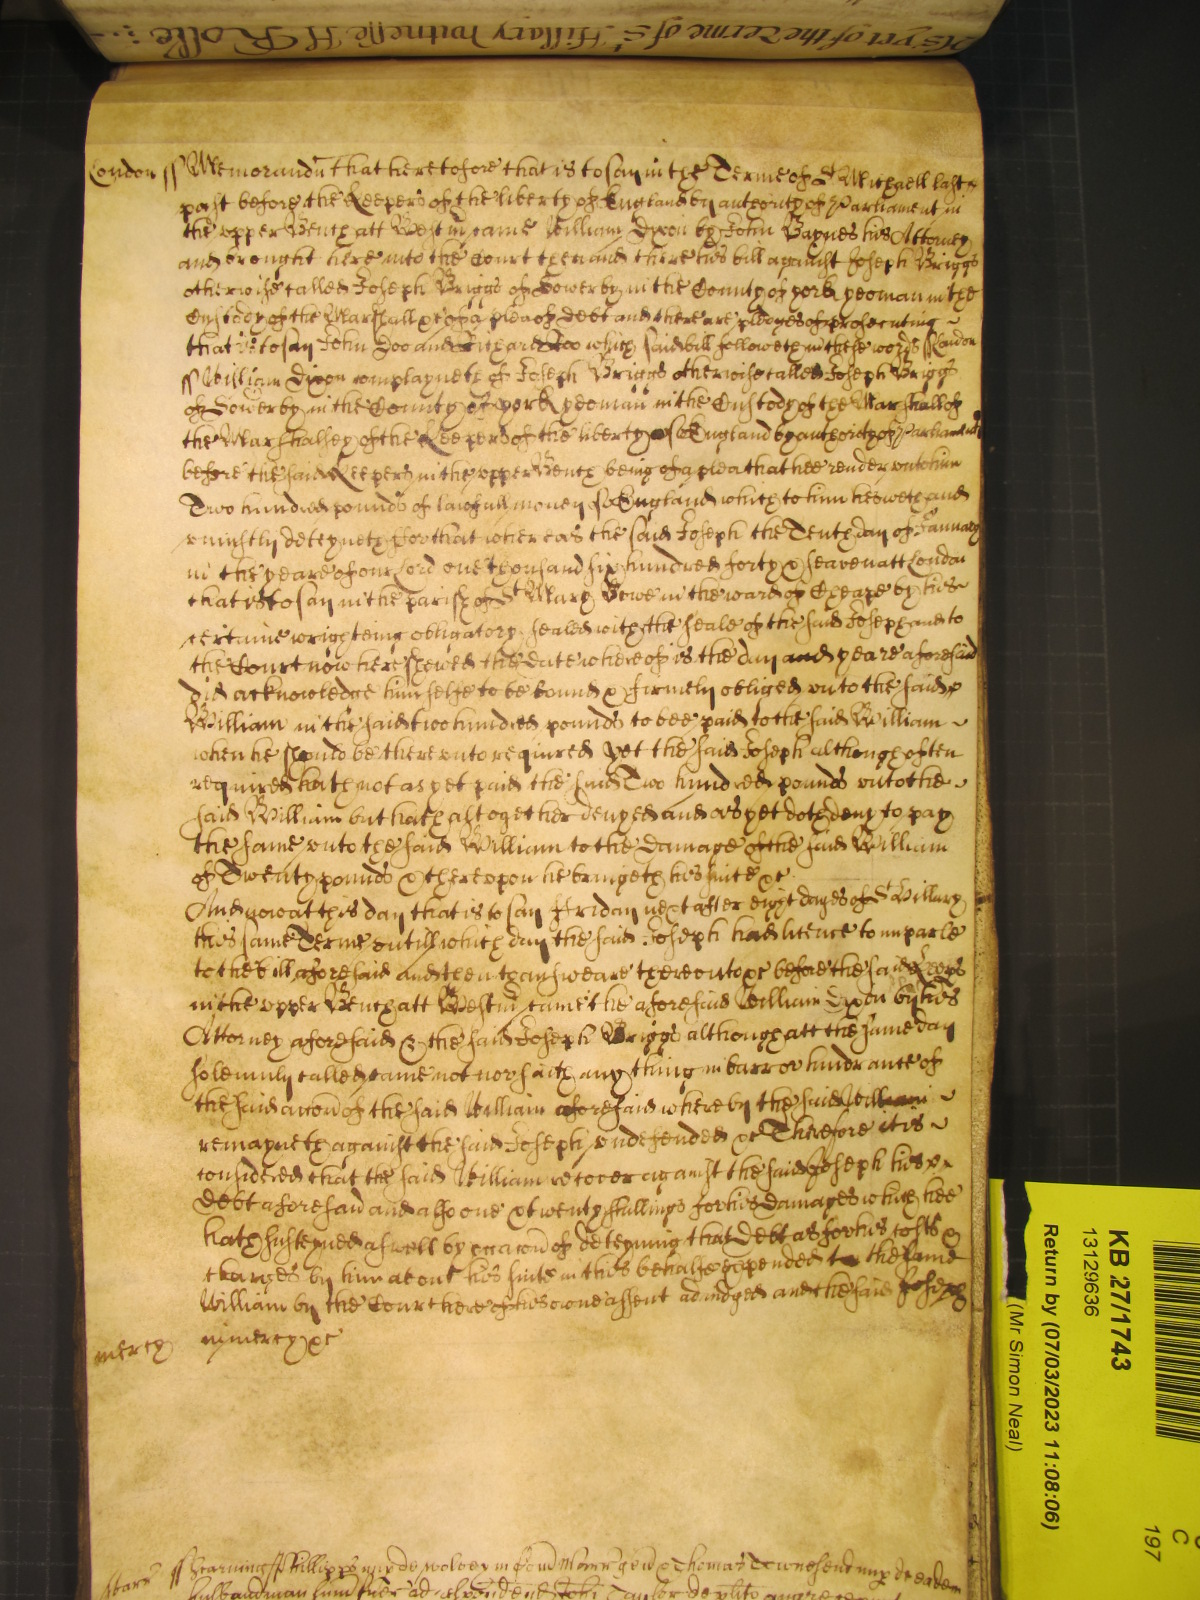 As yet of the Terme of St Hillary Witnesse H Rolle
London ss Memorandu that heretofore that is to say in the Terme of St Michaell last
past before the Keepers of the liberty of England by authority of Parliament in
the upper Bench att Westm came William Dixon by John Baynes his Attorney
and brought here into the Court then and there his bill against Joseph Briggs
otherwise called Joseph Briggs of Sowerby in the County of york yeoman in the
Custody of the Marshall &c of a plea of debt and there are pledges of prosecuting
that is to say John Doo and Richard Roo which said bill followeth in these words ss London
ss William Dixon complayneth of Joseph Briggs otherwise called Joseph Briggs
of Sowerby in the County of york yeoman in the Custody of the Marshall of
the Marshalsey of the Keepers of the liberty of England by authority of Parliament
before the said Keepers in the upper Bench being of a plea that hee render unto him
Two hundred pounds of lawfull money of England which to him he oweth and
uniustly deteyneth For that whereas the said Joseph the Tenth day of January
in the yeare of our Lord one thousand six hundred forty & seaven att London
that is to say in the parish of St Mary Bowe in the ward of Cheape by his
certaine wrighteing obligatory sealed with the seale of the said Joseph and to
the Court now here shewed the date whereof is the day and yeare aforesaid
did acknowledge himselfe to be bound & firmely obliged unto the said
William in the said two hundred pounds to bee paid to the said William
when he should be thereunto required yet the said Joseph although often
required hath not as yet paid the said Two hundred pounds unto the
said William but hath altogether denyed and as yet doth deny to pay
the same unto the said William to the damage of the said William
of Twenty pounds & thereupon he bringeth his suite &c
And now att this day that is to say Friday next after eight dayes of St Hillary
this same Terme untill which day the said Joseph had licence to imparle
to the bill aforesaid and then to answeare thereunto &c before the said Keeps
in the upper Bench att Westm came the aforesaid William Dixon by his
Attorney aforesaid & the said Joseph Briggs although att the same day
solemnly called came not nor saith any thing in barr or hindrance of
the said accon of the said William aforesaid whereby the said William
remayneth against the said Joseph undefended &c Therefore it is
considered that the said William recover against the said Joseph his
Debt aforesaid and also one & twenty shillings for his damages which hee
hath susteyned aswell by occacon of deteyning that Debt as for his costs &
charges by him about his suite in this behalfe expended to the same
William by the Court here of his owne assent adiudged and the said Joseph
mercy in mercy &c
KB 27/1743
13129636
Return by (07/03/2023 11:08:06)
(Mr Simon Neal)
C
197